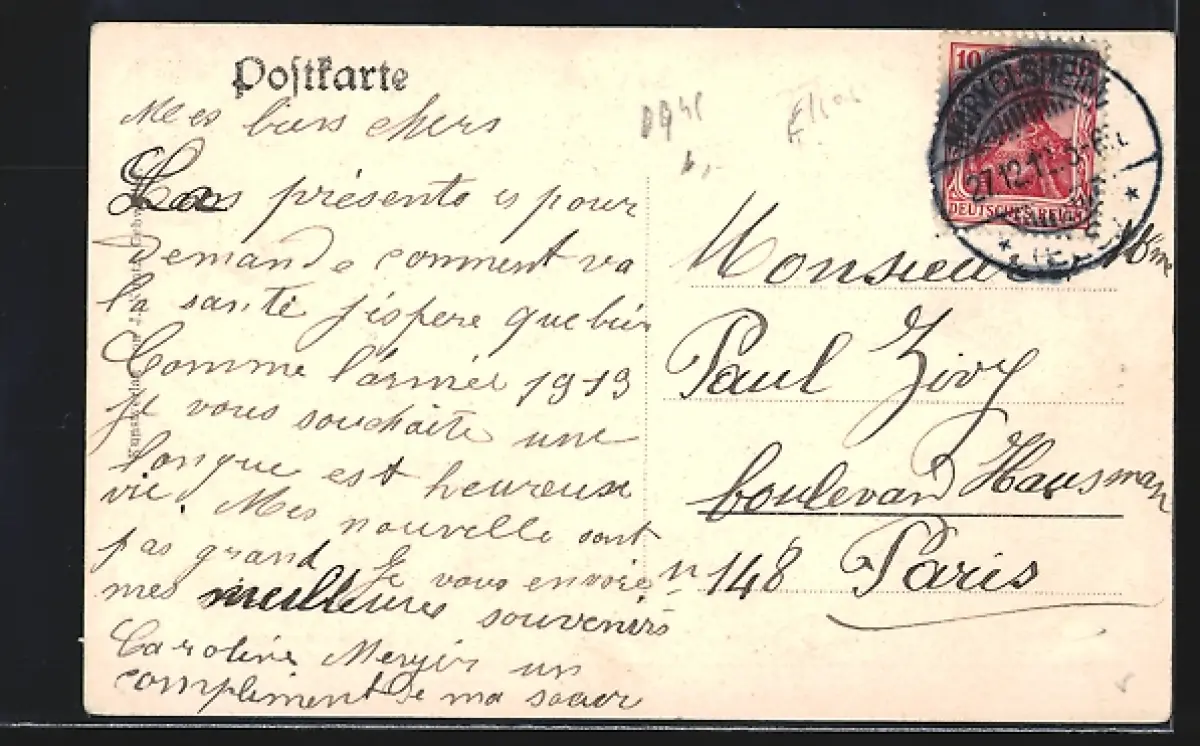 Postkarte
Mes biens chers
présente
pour
demande comment va
la santé j'espere que bien
Comme l'année 1913
je vous souchaite une
longue est heureuse
vie. Mes nouvelle sont
pas grand Je vous envoie
mes meilleures souvenirs
Caroline un
compliment de ma soeur
Monsieur Mme
Paul Zivy
boulevard Hausman
n 148 Paris
27.12.12. 5-6
DEUTSCHES REICH
10